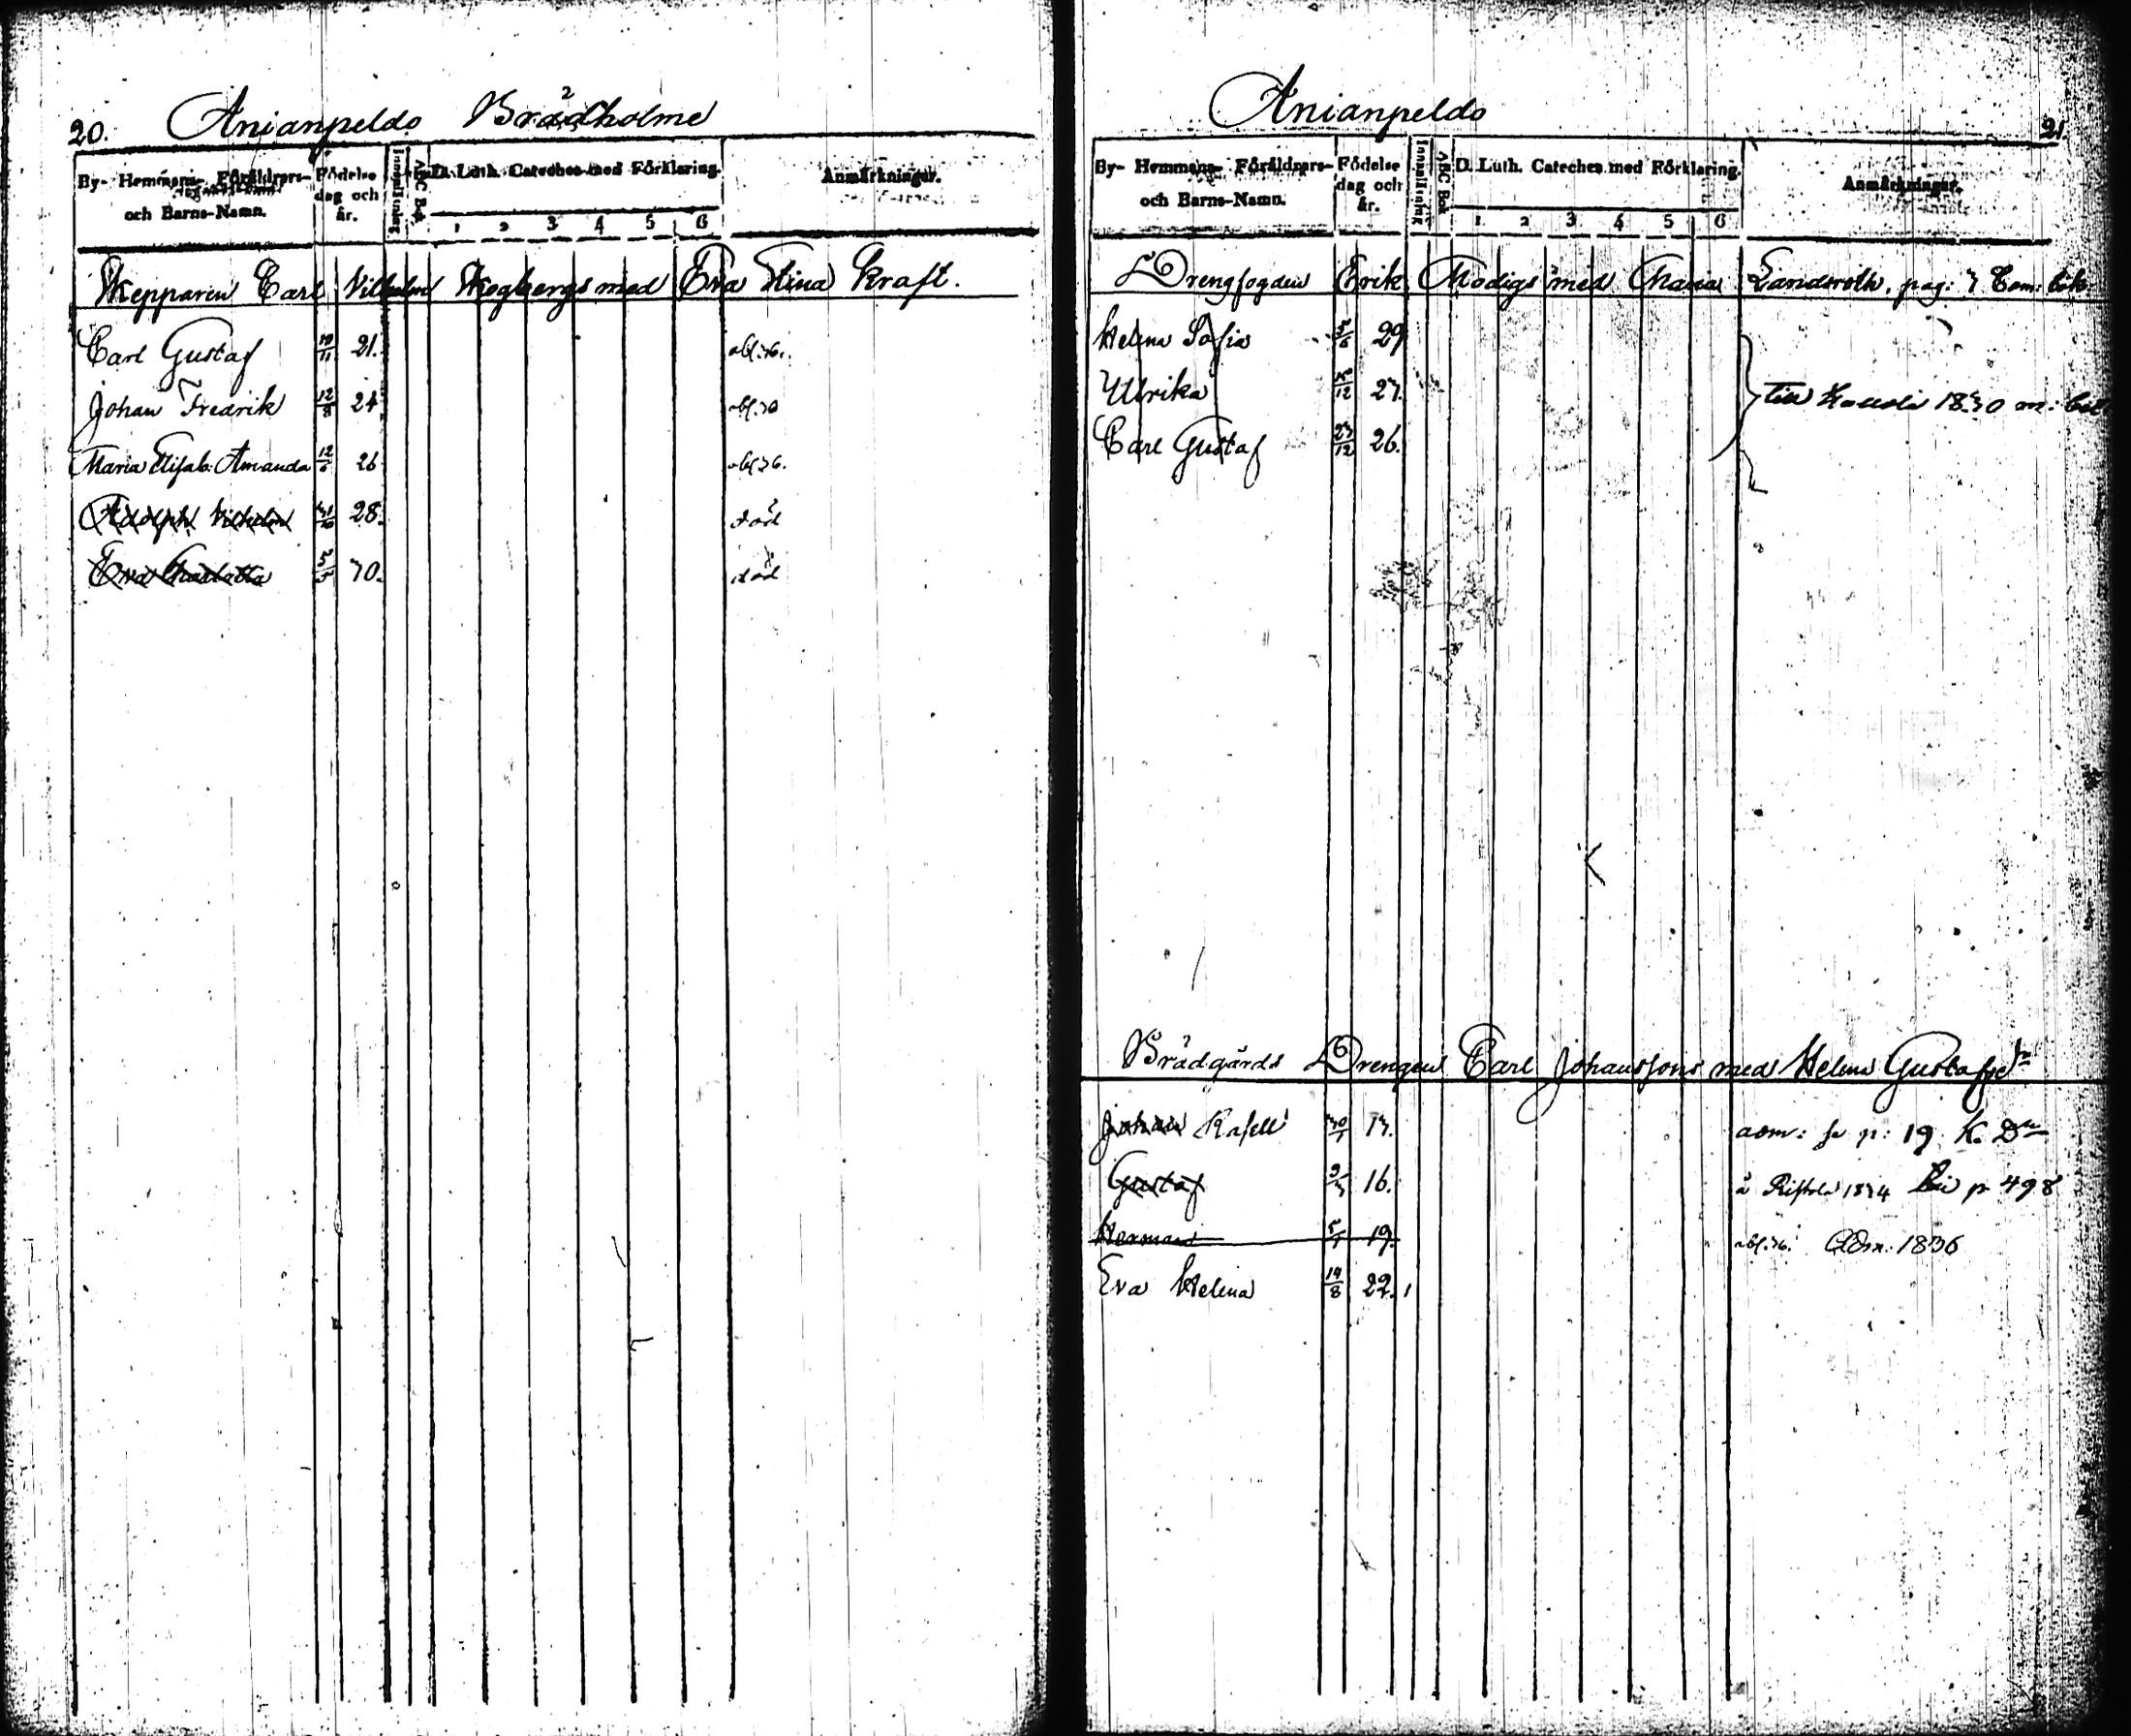 20. Anianpeldo Brädholme
By- Hemmans- Föräldrars-
och Barns-Namn.
Födelse
dag och
år.
Innanläsning
ABC Bok
D. Luth. Cateches med Förklaring.
1 2 3 4 5 6
Anmärkningar.
Skepparen Carl Vilhelm Skogbergs med Eva Stina Kraft.
Carl Gustaf 10/11 21.
Johan Fredrik 12/8 24
Maria Elisab: Amanda 12/6 26
Adolph Vilhelm 28. död
Eva Charlotta 5/5 30. död
Anianpeldo 21.
By- Hemmans- Föräldrars-
och Barns-Namn.
Födelse
dag och
år.
Innanläsning
ABC Bok
D. Luth. Cateches med Förklaring.
1 2 3 4 5 6
Anmärkningar.
Drengfogden Erik Modigs med Maria Landsroth, pag: 3 Com: bok:
Helena Sofia 5/6 29
Ulrika 23.
till 1830 m: bet
Carl Gustaf 23/12 26.
Brädgårds Drengen Carl Johanssons med Helena Gustafsdr
Johan Kasell 30/1 13. adm: se p: 19 K. Dn
Gustaf 2/3 16. å 1834 p 498
Herman 5/1 19. Adm: 1836
Eva Helena 14/8 22.